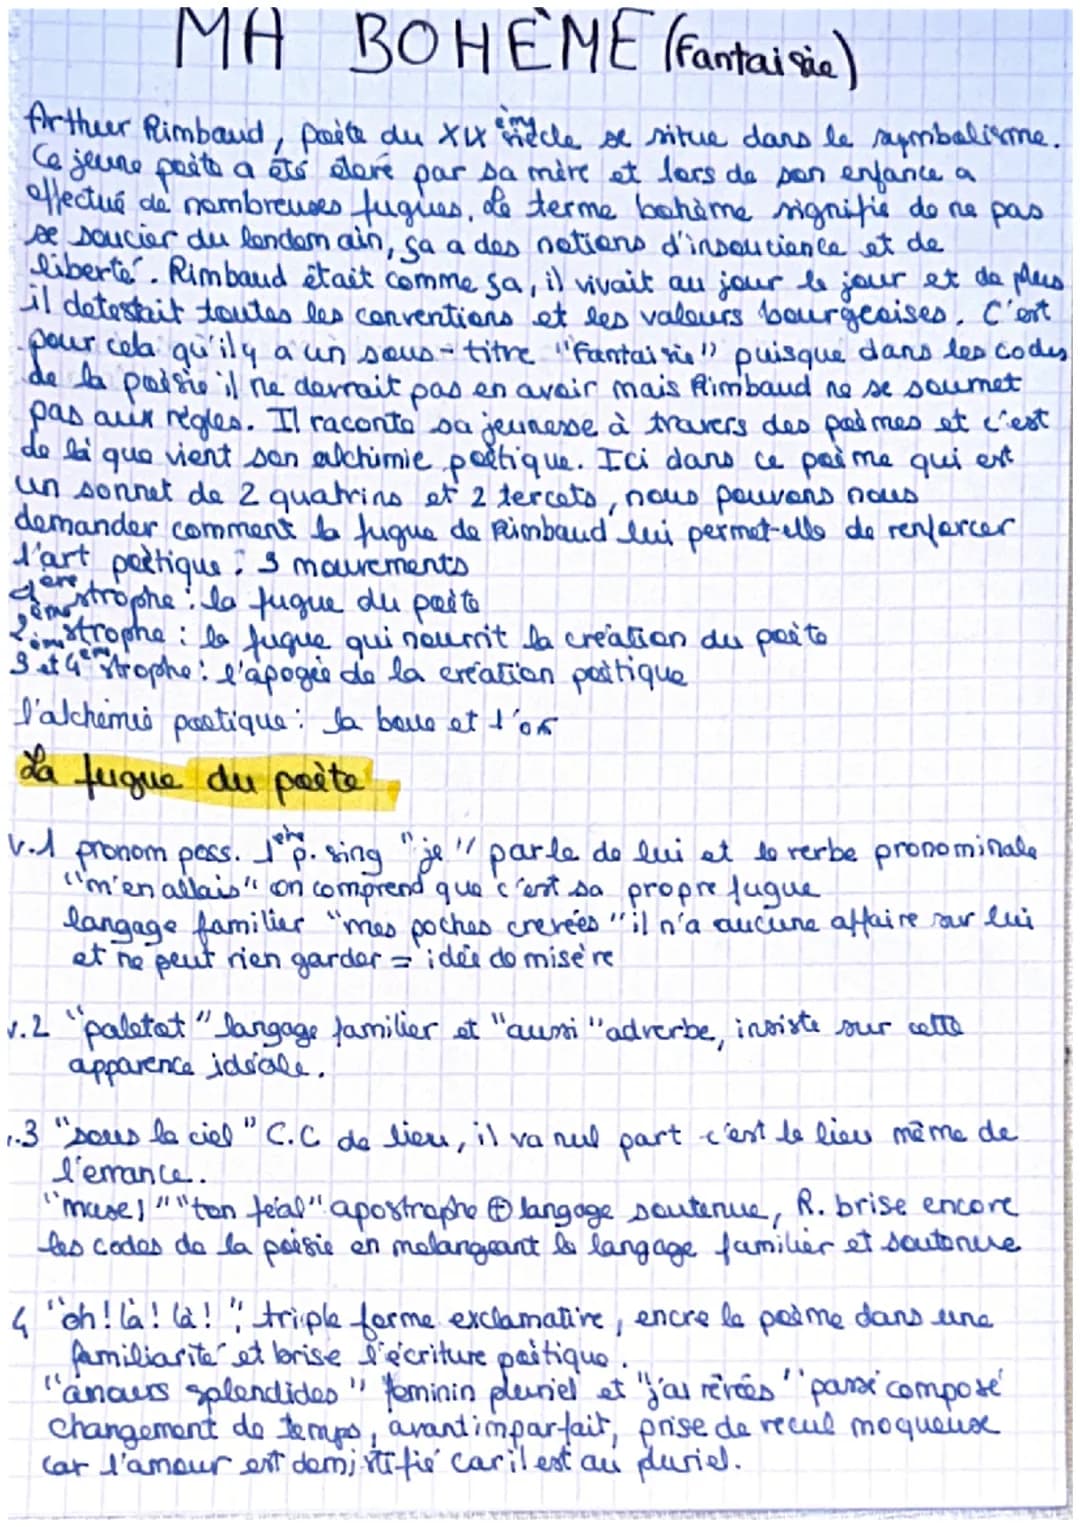 MA BOHÈME (Fantaisie)
Arthur Rimbaud, poète du XIX ème siècle se situe dans le symbolisme.
Ce jeune poète a été élevé par sa mère et lors de son enfance a
effectué de nombreuses fugues. Le terme bohème signifie de ne pas
se soucier du lendemain, ça a des notions d'insouciance et de
liberté. Rimbaud était comme ça, il vivait au jour le jour et de plus
il detestait toutes les conventions et les valeurs bourgeoises. C'est
pour cela qu'il y a un sous-titre "Fantaisie" puisque dans les codes
de la poésie il ne devrait pas en avoir mais Rimbaud ne se soumet
pas aux règles. Il raconte sa jeunesse à travers des poèmes et c'est
de là que vient son alchimie poétique. Ici dans ce poème qui est
un sonnet de 2 quatrins et 2 tercets, nous pouvons nous
demander comment la fugue de Rimbaud lui permet-elle de renforcer
l'art poètique : 3 mouvements
1ère strophe : la fugue du poète
2ème strophe : la fugue qui nourrit la création du poète
3ème et 4ème strophe : l'apogée de la création poétique
l'alchimie poetique : la boue et l'or
La fugue du poète
v.1 pronom poss. 1ère p. sing "je" parle de lui et le verbe pronominale
"m'en allais" on comprend que c'est sa propre fugue
langage familier "mes poches crevées" il n'a aucune affaire sur lui
et ne peut rien garder = idée de misère
v.2 "paletot" langage familier et "aussi" adverbe, insiste sur cette
apparence idéale.
v.3 "sous le ciel" C.C de lieu, il va nul part c'est le lieu même de
l'errance.
"muse!" "ton féal" apostrophe ⊕ langage soutenue, R. brise encore
les codes de la poésie en melangeant le langage familier et soutenue
4 "oh! là! là!", triple forme exclamative, encre le poème dans une
familiarité et brise l'écriture poétique.
"amours splendides" feminin pluriel et "j'ai rêvées" passé composé
changement de temps, avant imparfait, prise de recul moqueuse
car l'amour est demistifié car il est au pluriel.